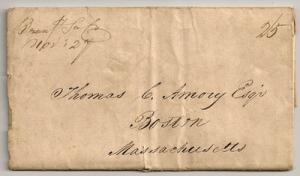 25
Nov: 27
Thomas C. Amory Esqr
Boston
Massachusetts